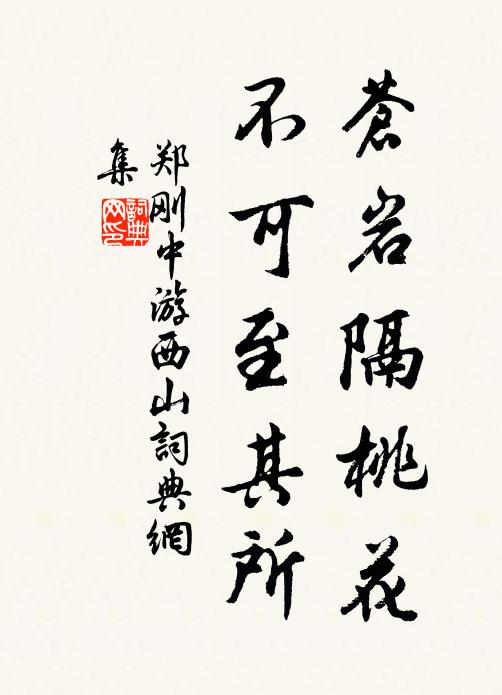 蒼岩隔桃花
不可至其所
郑刚中游西山詞典網
集
詞典
网印